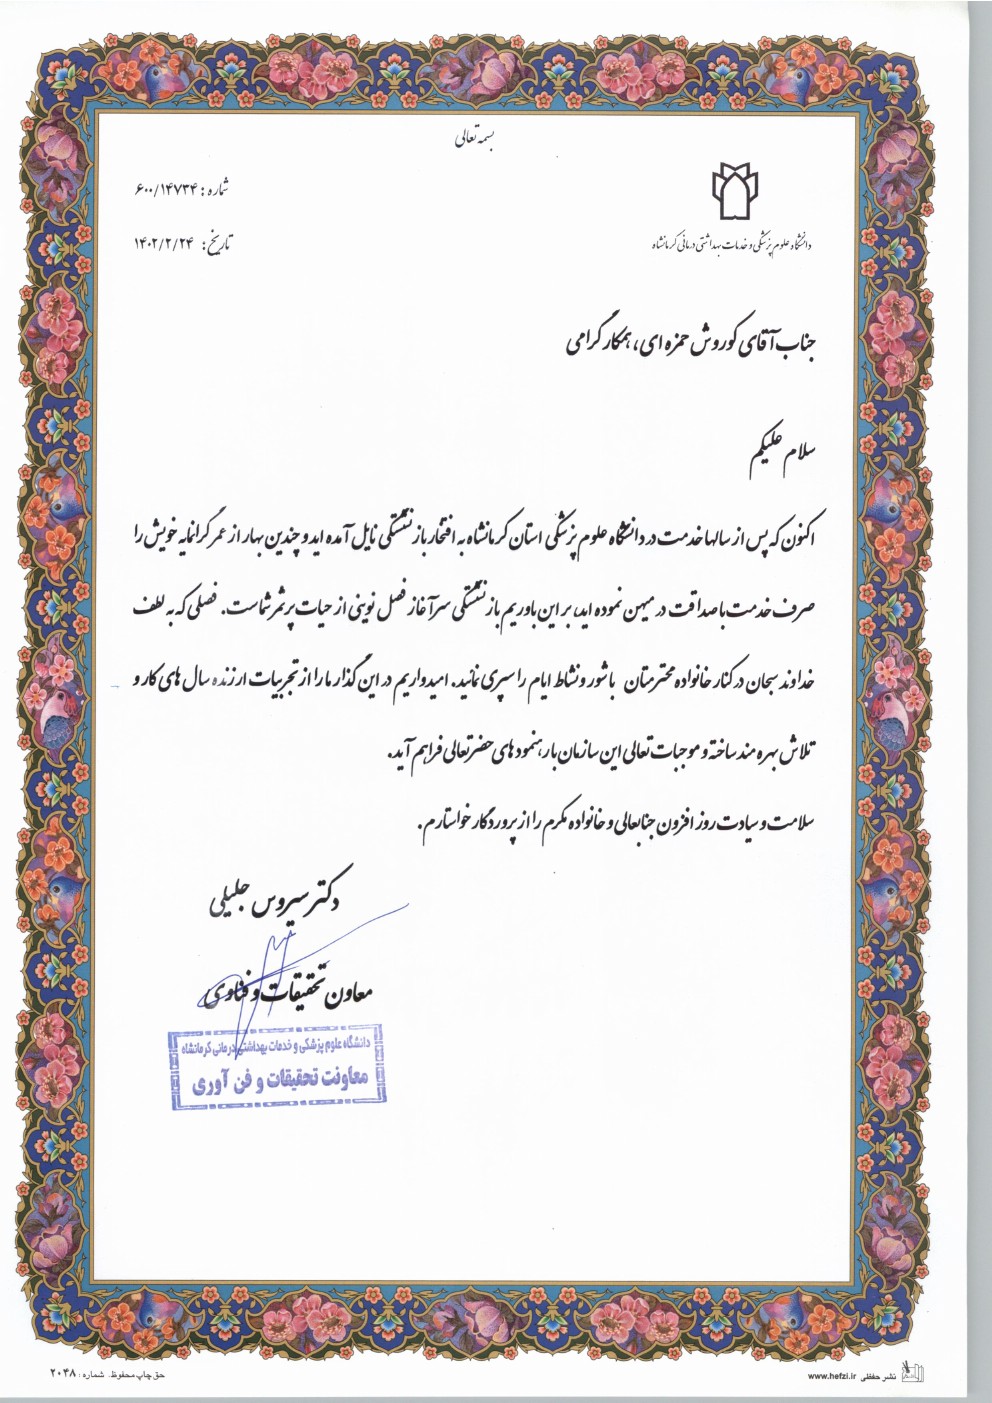 بسمه تعالی
شماره : ۶۰۰/۱۴۷۳۴
تاریخ : ۱۴۰۲/۲/۲۴
دانشگاه علوم پزشکی و خدمات بهداشتی درمانی کرمانشاه
جناب آقای کوروش حمزه ای، همکار گرامی
سلام علیکم
اکنون که پس از سالها خدمت در دانشگاه علوم پزشکی استان کرمانشاه به افتخار بازنشستگی نایل آمده اید و چندین بهار از عمر گرانمایه خویش را
صرف خدمت با صداقت در میهن نموده اید، بر این باوریم بازنشستگی سرآغاز فصل نوینی از حیات پرثمر شماست. فصلی که به لطف
خداوند سبحان در کنار خانواده محترمتان با شور و نشاط ایام را سپری نمائید. امیدواریم در این گذار ما را از تجربیات ارزنده سال های کار و
تلاش بهره مند ساخته و موجبات تعالی این سازمان با رهنمود های حضرتعالی فراهم آید.
سلامت و سیادت روز افزون جنابعالی و خانواده مکرم را از پروردگار خواستارم.
دکتر سیروس جلیلی
معاون تحقیقات و فناوری
دانشگاه علوم پزشکی و خدمات بهداشتی درمانی کرمانشاه
معاونت تحقیقات و فن آوری
نشر حفظی www.hefzi.ir
حق چاپ محفوظ. شماره : ۲۰۴۸